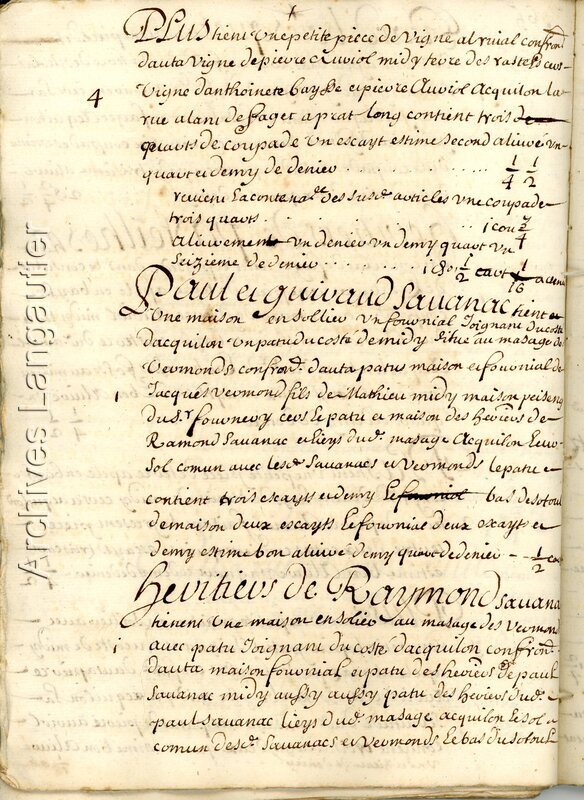 PLUS tient une petite piece de vigne al rivial confron
dauta vigne de pierre Auriol midy terre des rastels cers
4 vigne danthoinete baysse et pierre Auriol Acquilon la
rue alant de Paget a prat long contient trois
quarts de coupade un escayt estime second alivré un
quart et demy de denier . . . . . . 1/4 1/2
revient la contenan.e des susd. articles une coupade
trois quarts . . . . . . 1 cou 3/4
alivrement un denier un demy quart un
seizieme de denier . . . . . . 1/2 cart 1/16
Paul et guiraud Savanac tient et
une maison en sollier un fournial Joignant du coste
dacquilon un patu du costé de midy situé au masage des
Vermonds confron. dauta patus maison et fournial de
1 Jacques vermond fils de Mathieu midy maison
du s.r fournery cers le patu et maison des heriers de
Ramond Savanac et lieys dud. masage Acquilon le
sol comun avec lesd. Savanacs et vermonds le patu
contient trois escayts et demy le fournial bas desotoul
de maison deux escayts le fournial deux escayts et
demy estime bon alivré demy quart de denier - 1/2 ca
heritiers de Raymond Savana
tienent une maison en solier au masage des vermon
1 avec patu Joignant du costé dacquilon confron.
dauta maison fournial et patu des heriers de paul
Savanac midy aussy aussy patu des heriers dud.
paul savanac lieys dud. masage acquilon le sol
comun desd. Savanacs et vermonds le bas du sotoul
Archives Langautier